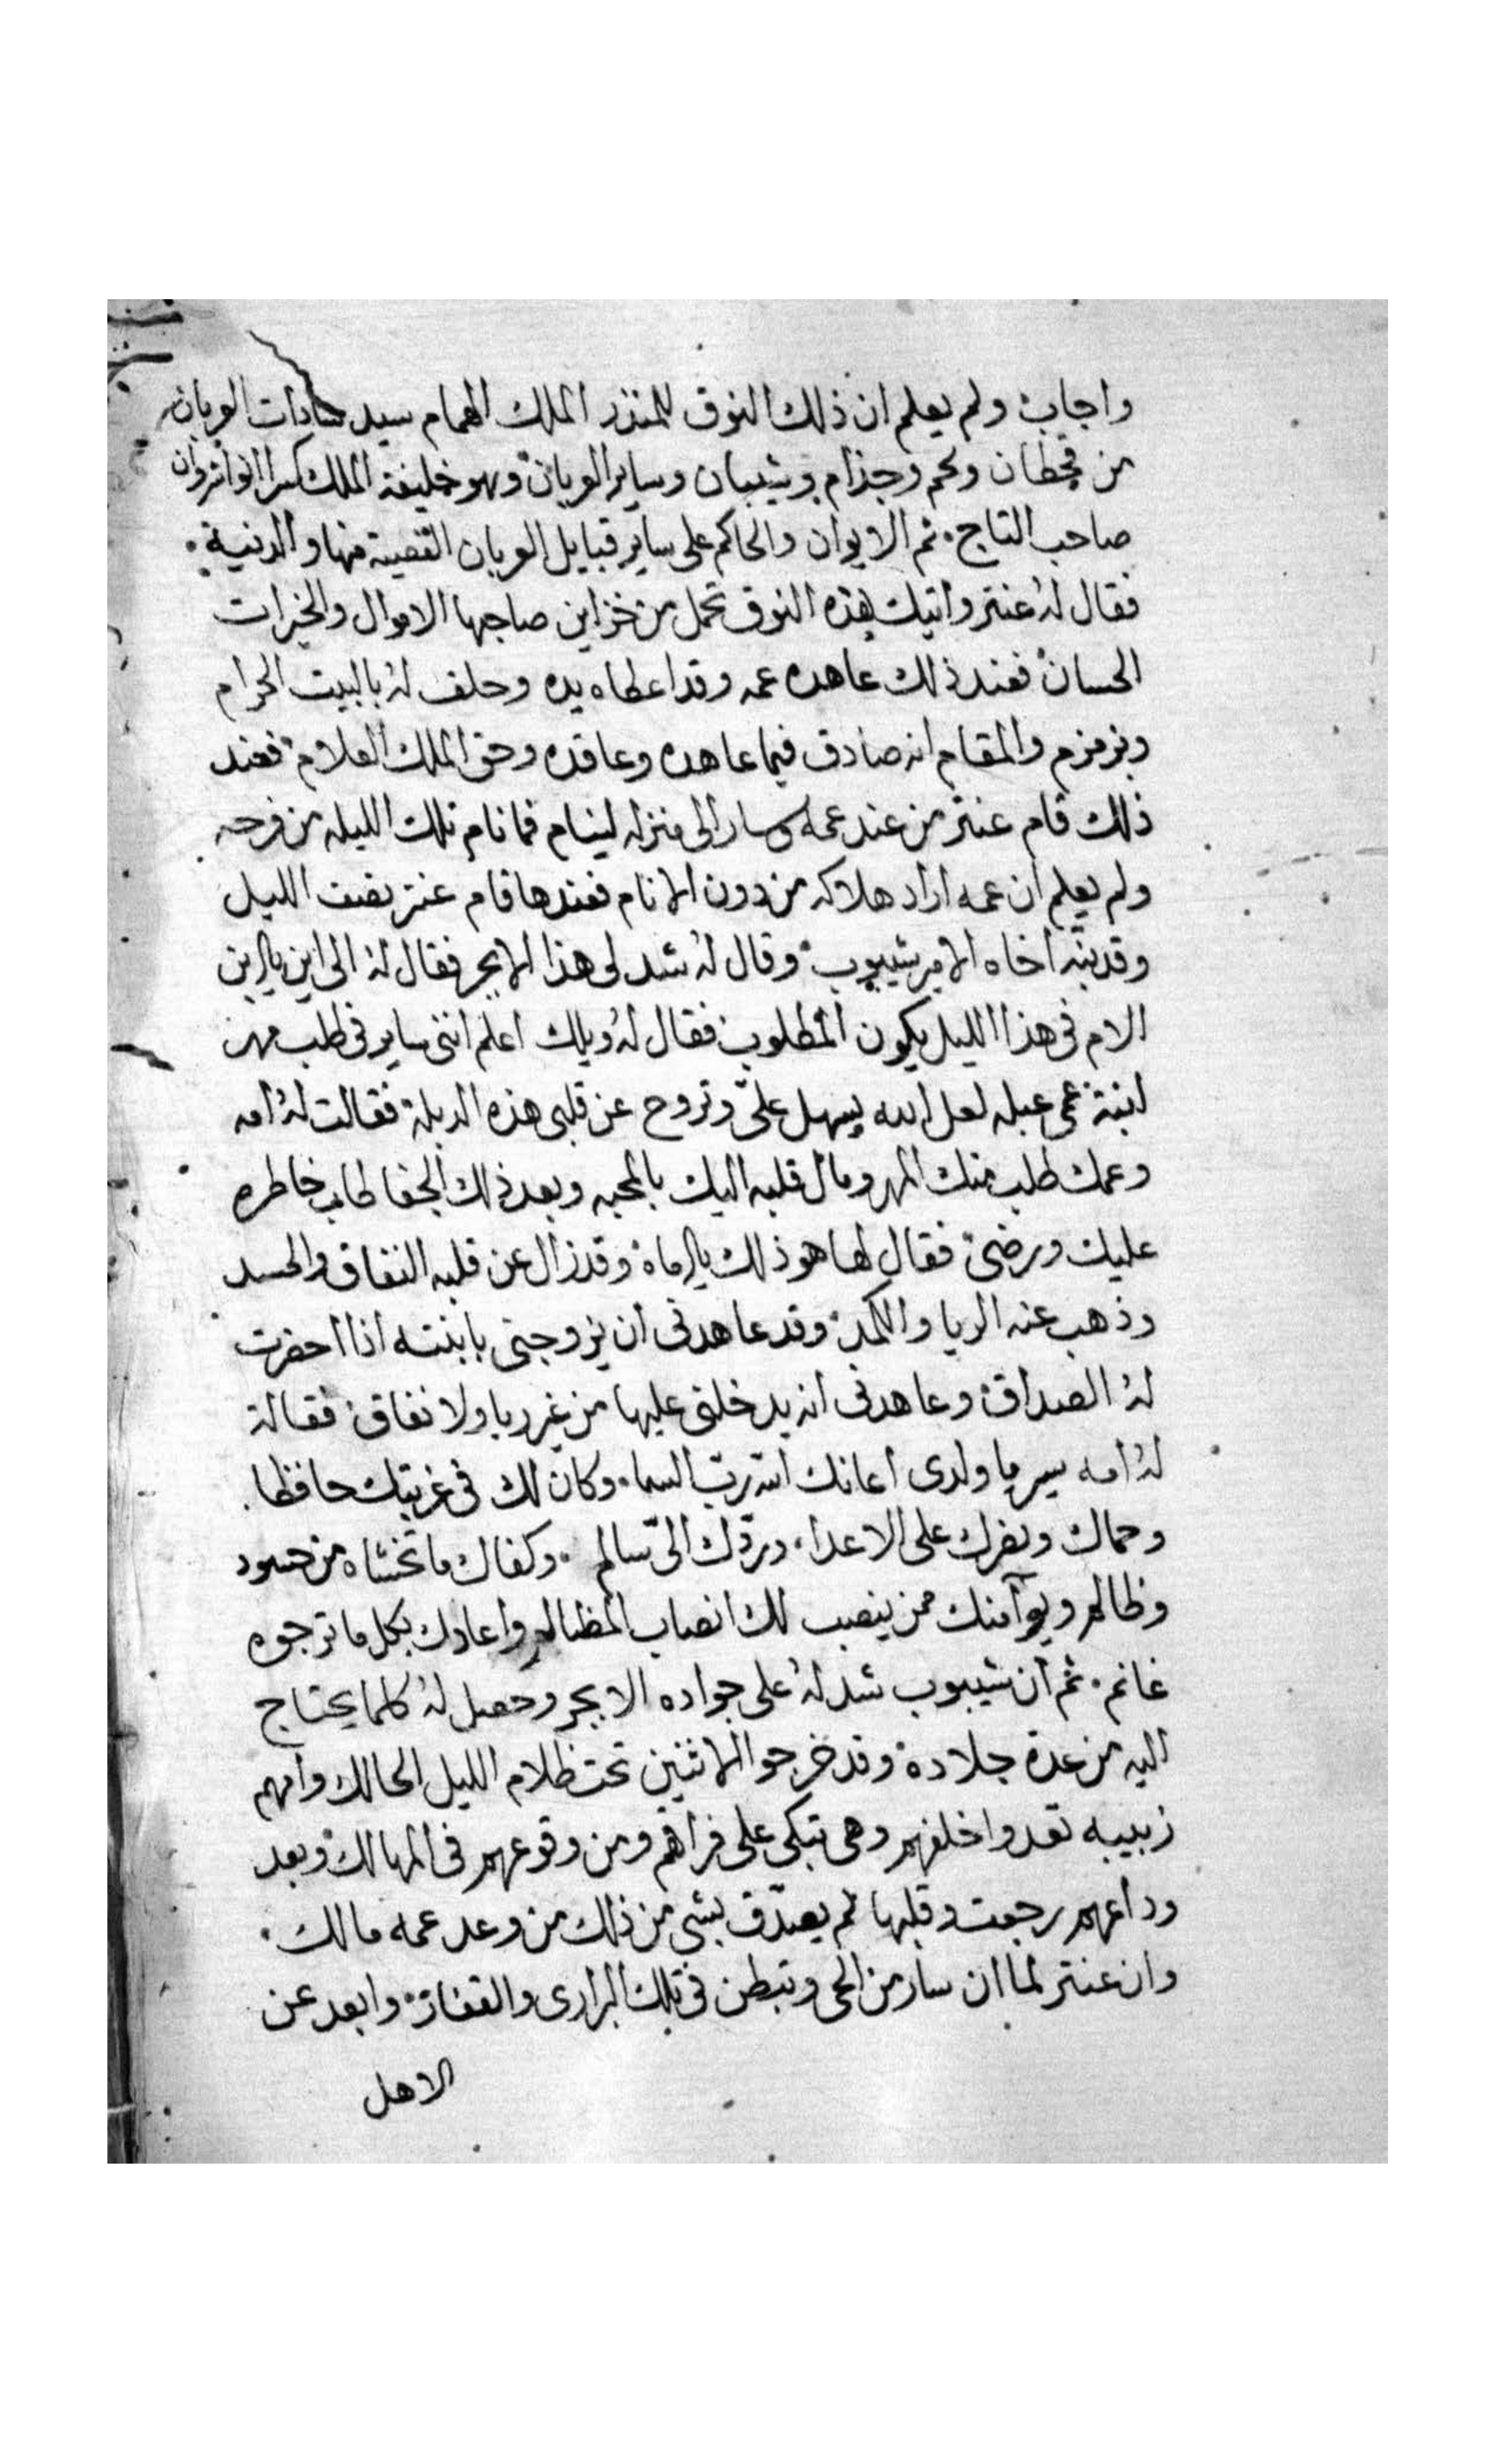 واجاب ولم يعلم ان ذلك النوق للمنذر الملك الهمام سيد سادات العربان
من قحطان ولخم وجذام وشيبان وساير العربان وهو خليفة الملك كسرا انواشروان
صاحب التاج ثم الايوان والحاكم على ساير قبايل العربان القصية منها والدنية
فقال له عنتر واتيك بهذه النوق تحمل من خزاين صاحبها الاموال والخيرات
الحسان فعند ذلك عاهده عمه وقد اعطاه يده وحلف له بالبيت الحرام
وبزمزم والمقام انه صادق فيما عاهده وعاقده وحق الملك العلام فعند
ذلك قام عنتر من عند عمه وسار الى منزله لينام فما نام تلك الليله من فرحه
ولم يعلم ان عمه اراد هلاكه من دون الانام فعندها قام عنتر نصف الليل
وقد نبّه اخاه الامير شيبوب وقال له شد لى هذا الابجر فقال له الى اين يا ابن
الام فى هذا الليل يكون المطلوب فقال له ويلك اعلم اننى ساير فى طلب مهر
ابنة عمى عبله لعل الله يسهل علىّ وتروح عن قلبى هذه الدبلة فقالت له امه
وعمك طلب منك المهر ومال قلبه اليك بالمحبه وبعد ذلك الجفا طاب خاطره
عليك ورضى فقال لها هو ذلك يا اماه وقد زال عن قلبه النفاق والحسد
وذهب عنه الريا والكمد وقد عاهدنى ان يزوجنى بابنته اذا احضرت
له الصداق وعاهدنى انه يدخلنى عليها من غير ريا ولا نفاق فقالة
له امه سير يا ولدى اعانك الله ربّ السما وكان لك فى غربتك حافظا
وحماك ونصرك على الاعدا وردّك الىّ سالم وكفاك ما تخشاه من حسود
وظالم ويوآمنك ممن ينصب لك انصاب المظالم واعادك بكل ما ترجوه
غانم ثم ان شيبوب شد له على جواده الابجر وحصل له كلما يحتاج
اليه من عدة جلادة وقد خرجو الاثنين تحت ظلام الليل الحالك وامهم
زبيبه تعدوا خلفهم وهى تبكى على فراقهم ومن وقوعهم فى المهالك وبعد
وداعهم رجعت وقلبها لم يصدّق بشى من ذلك من وعد عمه مالك
وان عنتر لما ان سار من الحى وتبطن فى تلك البرارى والقفار وابعد عن
الاهل